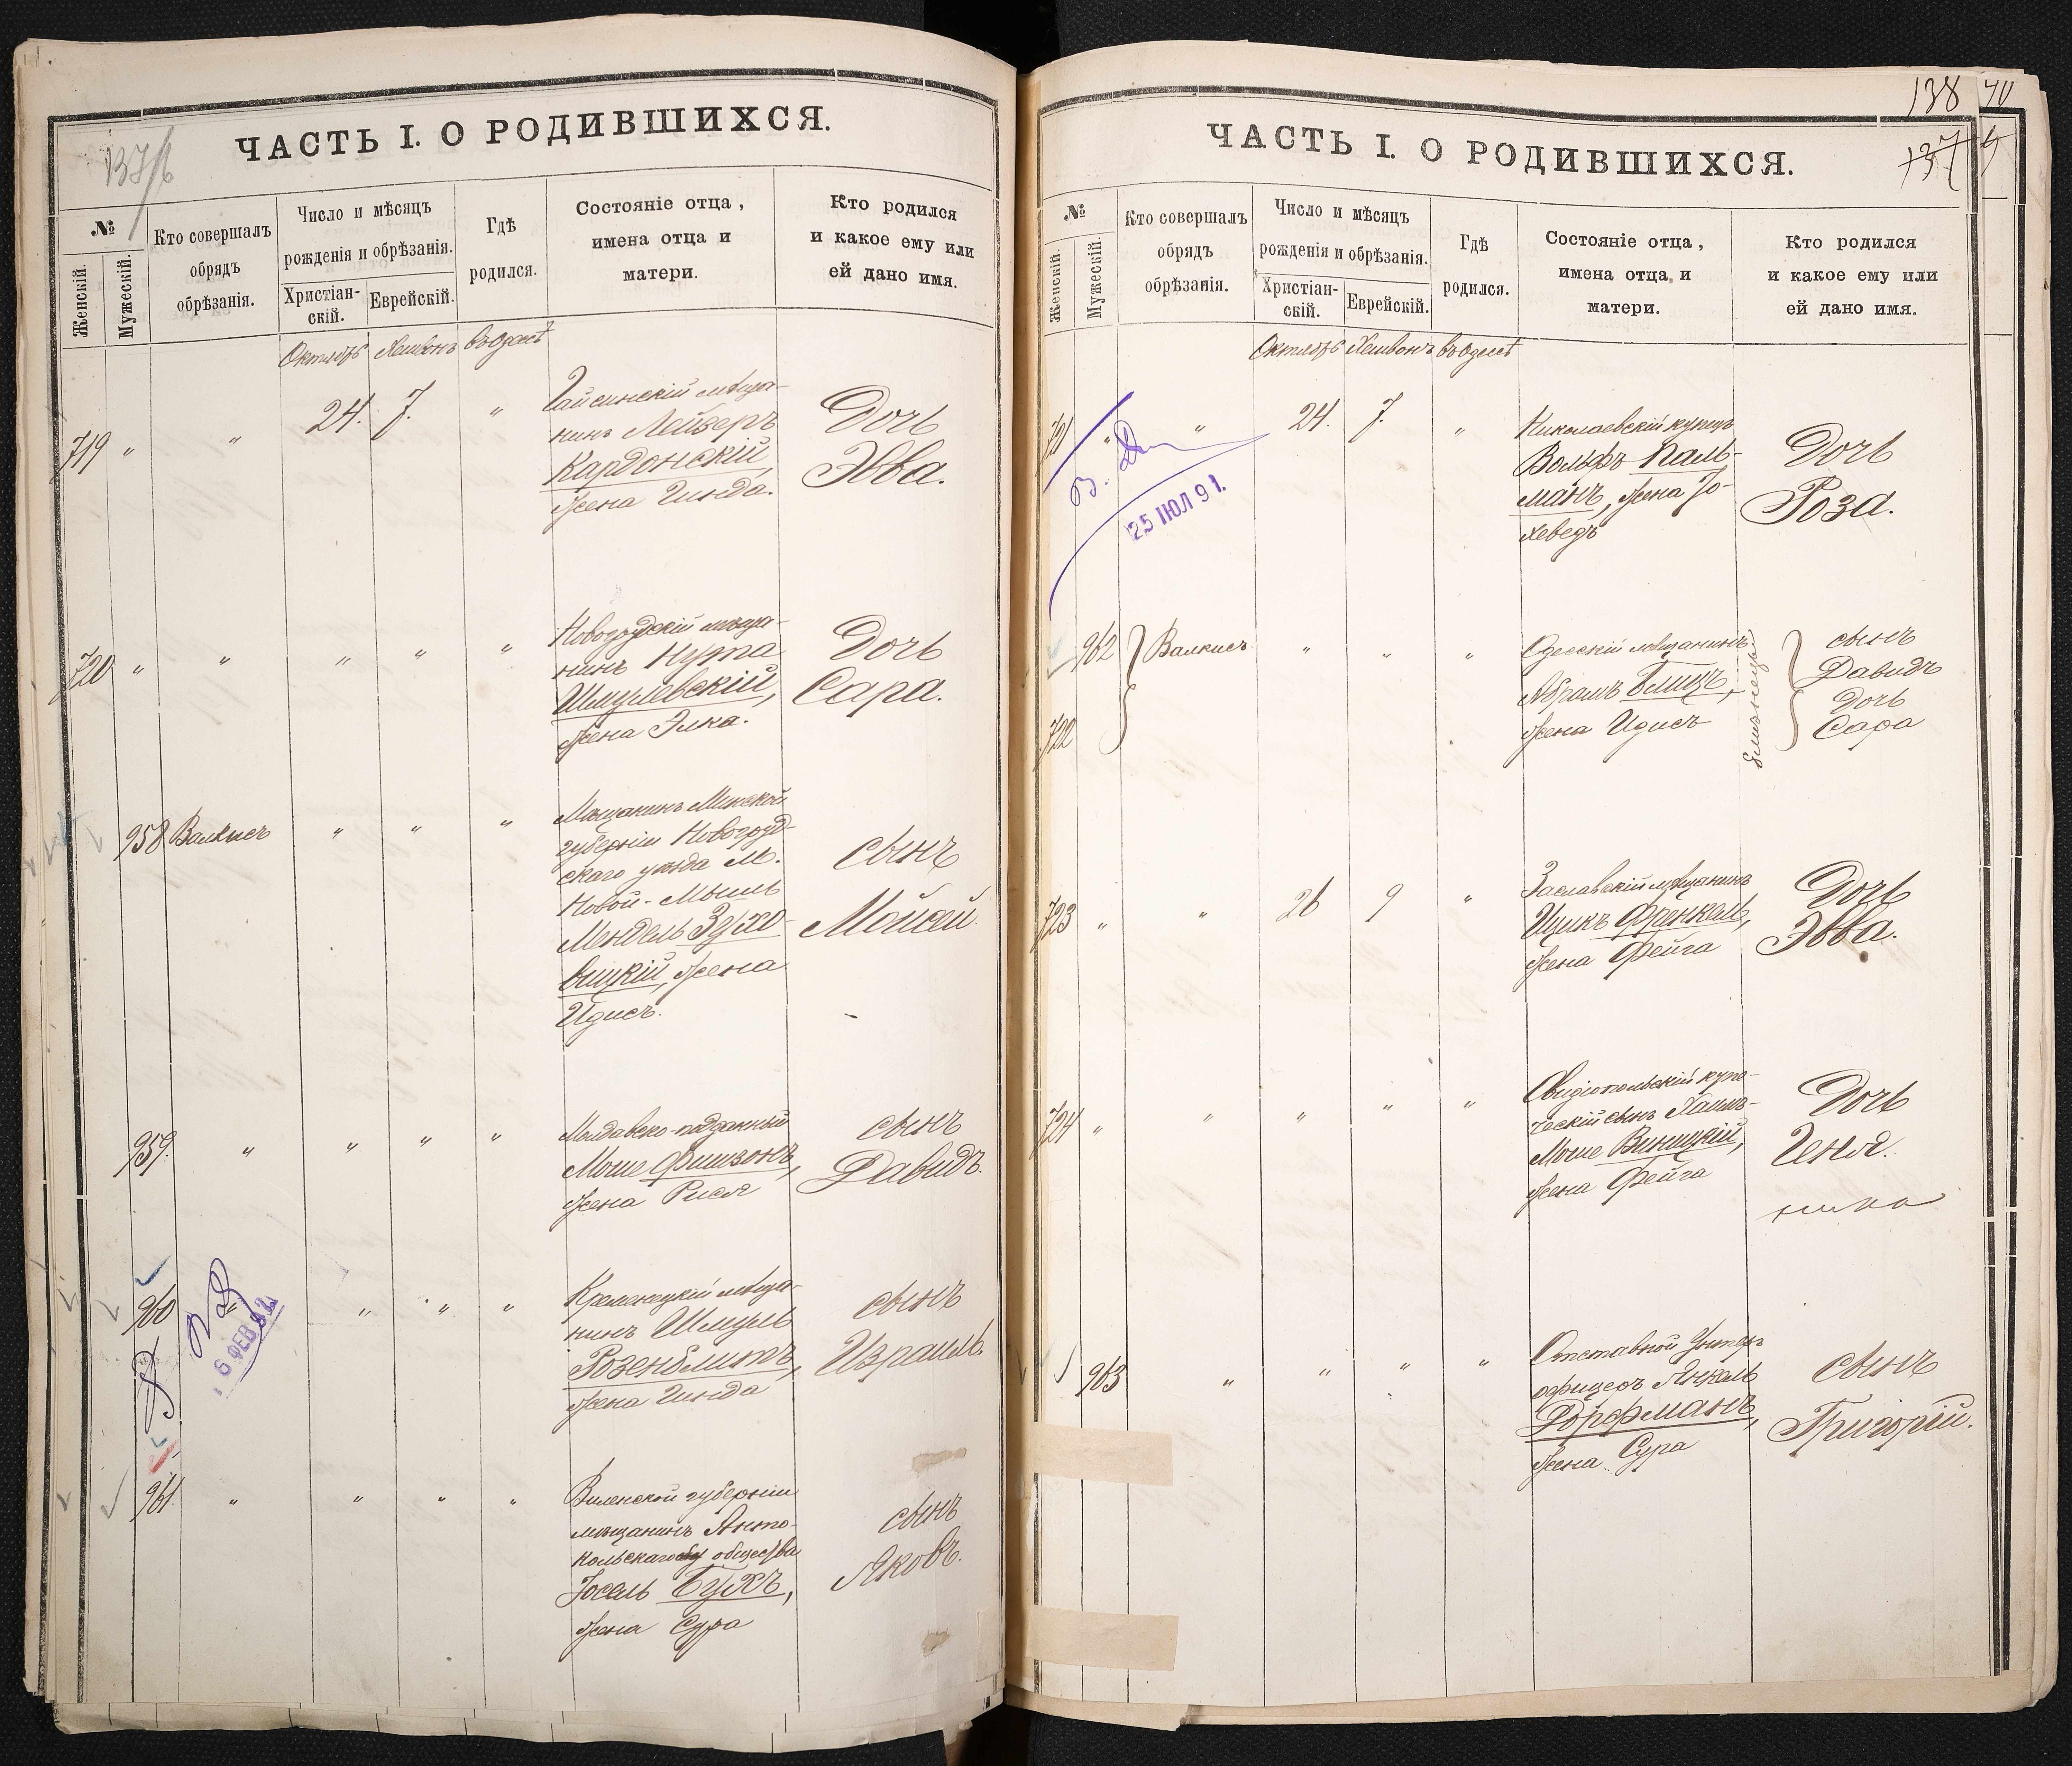 137/б
ЧАСТЬ I. О РОДИВШИХСЯ.
№
Женскій.
Мужескій.
Кто совершалъ
обрядъ
обрѣзанія.
Число и мѣсяцъ
рожденія и обрѣзанія.
Христіан-
скій.
Еврейскій.
Гдѣ
родился.
Состояніе отца,
имена отца и
матери.
Кто родился
и какое ему или
ей дано имя.
Октябрь Хешвонъ въ Одессѣ
719 " " 24. 7. "
Гайсинскій мѣща-
нинъ Лейзеръ
Кардонскій,
жена Гинда.
Дочь
Эвва.
720 " " " " "
Новогрудскій мѣща-
нинъ Нута
Шмулевскій,
жена Элка.
Дочь
Сара.
958 Валкисъ " " "
Мѣщанинъ Минской
губерніи Новогруд-
скаго уѣзда м.
Новой-Мыши
Мендель Зухо-
вицкій, жена
Идисъ.
сынъ
Мойсей.
959. " " " "
Молдавско-подданный
Моше Фишзонъ,
жена Рися
сынъ
Давидъ.
960 " " " "
6 ФЕВ 82
Кременецкій мѣща-
нинъ Шмуль
Розенблитъ,
жена Гинда
сынъ
Израиль.
961. " " " "
Виленской губерніи
мѣщанинъ Анто-
кольскаго общества
Іосель Бухъ,
жена Сура
сынъ
Яковъ.
138
40
137
ЧАСТЬ I. О РОДИВШИХСЯ.
№
Женскій.
Мужескій.
Кто совершалъ
обрядъ
обрѣзанія.
Число и мѣсяцъ
рожденія и обрѣзанія.
Христіан-
скій.
Еврейскій.
Гдѣ
родился.
Состояніе отца,
имена отца и
матери.
Кто родился
и какое ему или
ей дано имя.
Октябрь Хешвонъ въ Одессѣ
721 " " 24. 7. "
25 ІЮЛ 91.
Николаевскій купецъ
Вольфъ Паль-
манъ, жена Іо-
хеведъ
Дочь
Роза.
962 Валкисъ " " "
722
Одесскій мѣщанинъ
Абрамъ Блицъ,
жена Идисъ
близнецы
сынъ
Давидъ
Дочь
Сара
723 " " 26 9 "
Заславскій мѣщанинъ
Ицикъ Френкель,
жена Фейга
Дочь
Эвва.
724 " " " " "
Овидіопольскій купе-
ческій сынъ Хаимъ-
Моше Виницкій,
жена Фейга
Дочь
Геня.
963 " " " "
Отставной Унтеръ
офицеръ Янкель
Дорфманъ,
жена Сура
сынъ
Григорій.